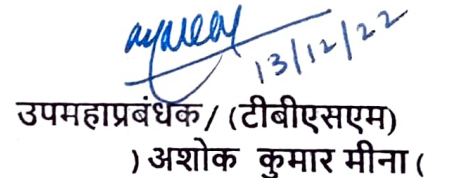 13/12/22
उपमहाप्रबंधक/ (टीबीएसएम)
) अशोक कुमार मीना (